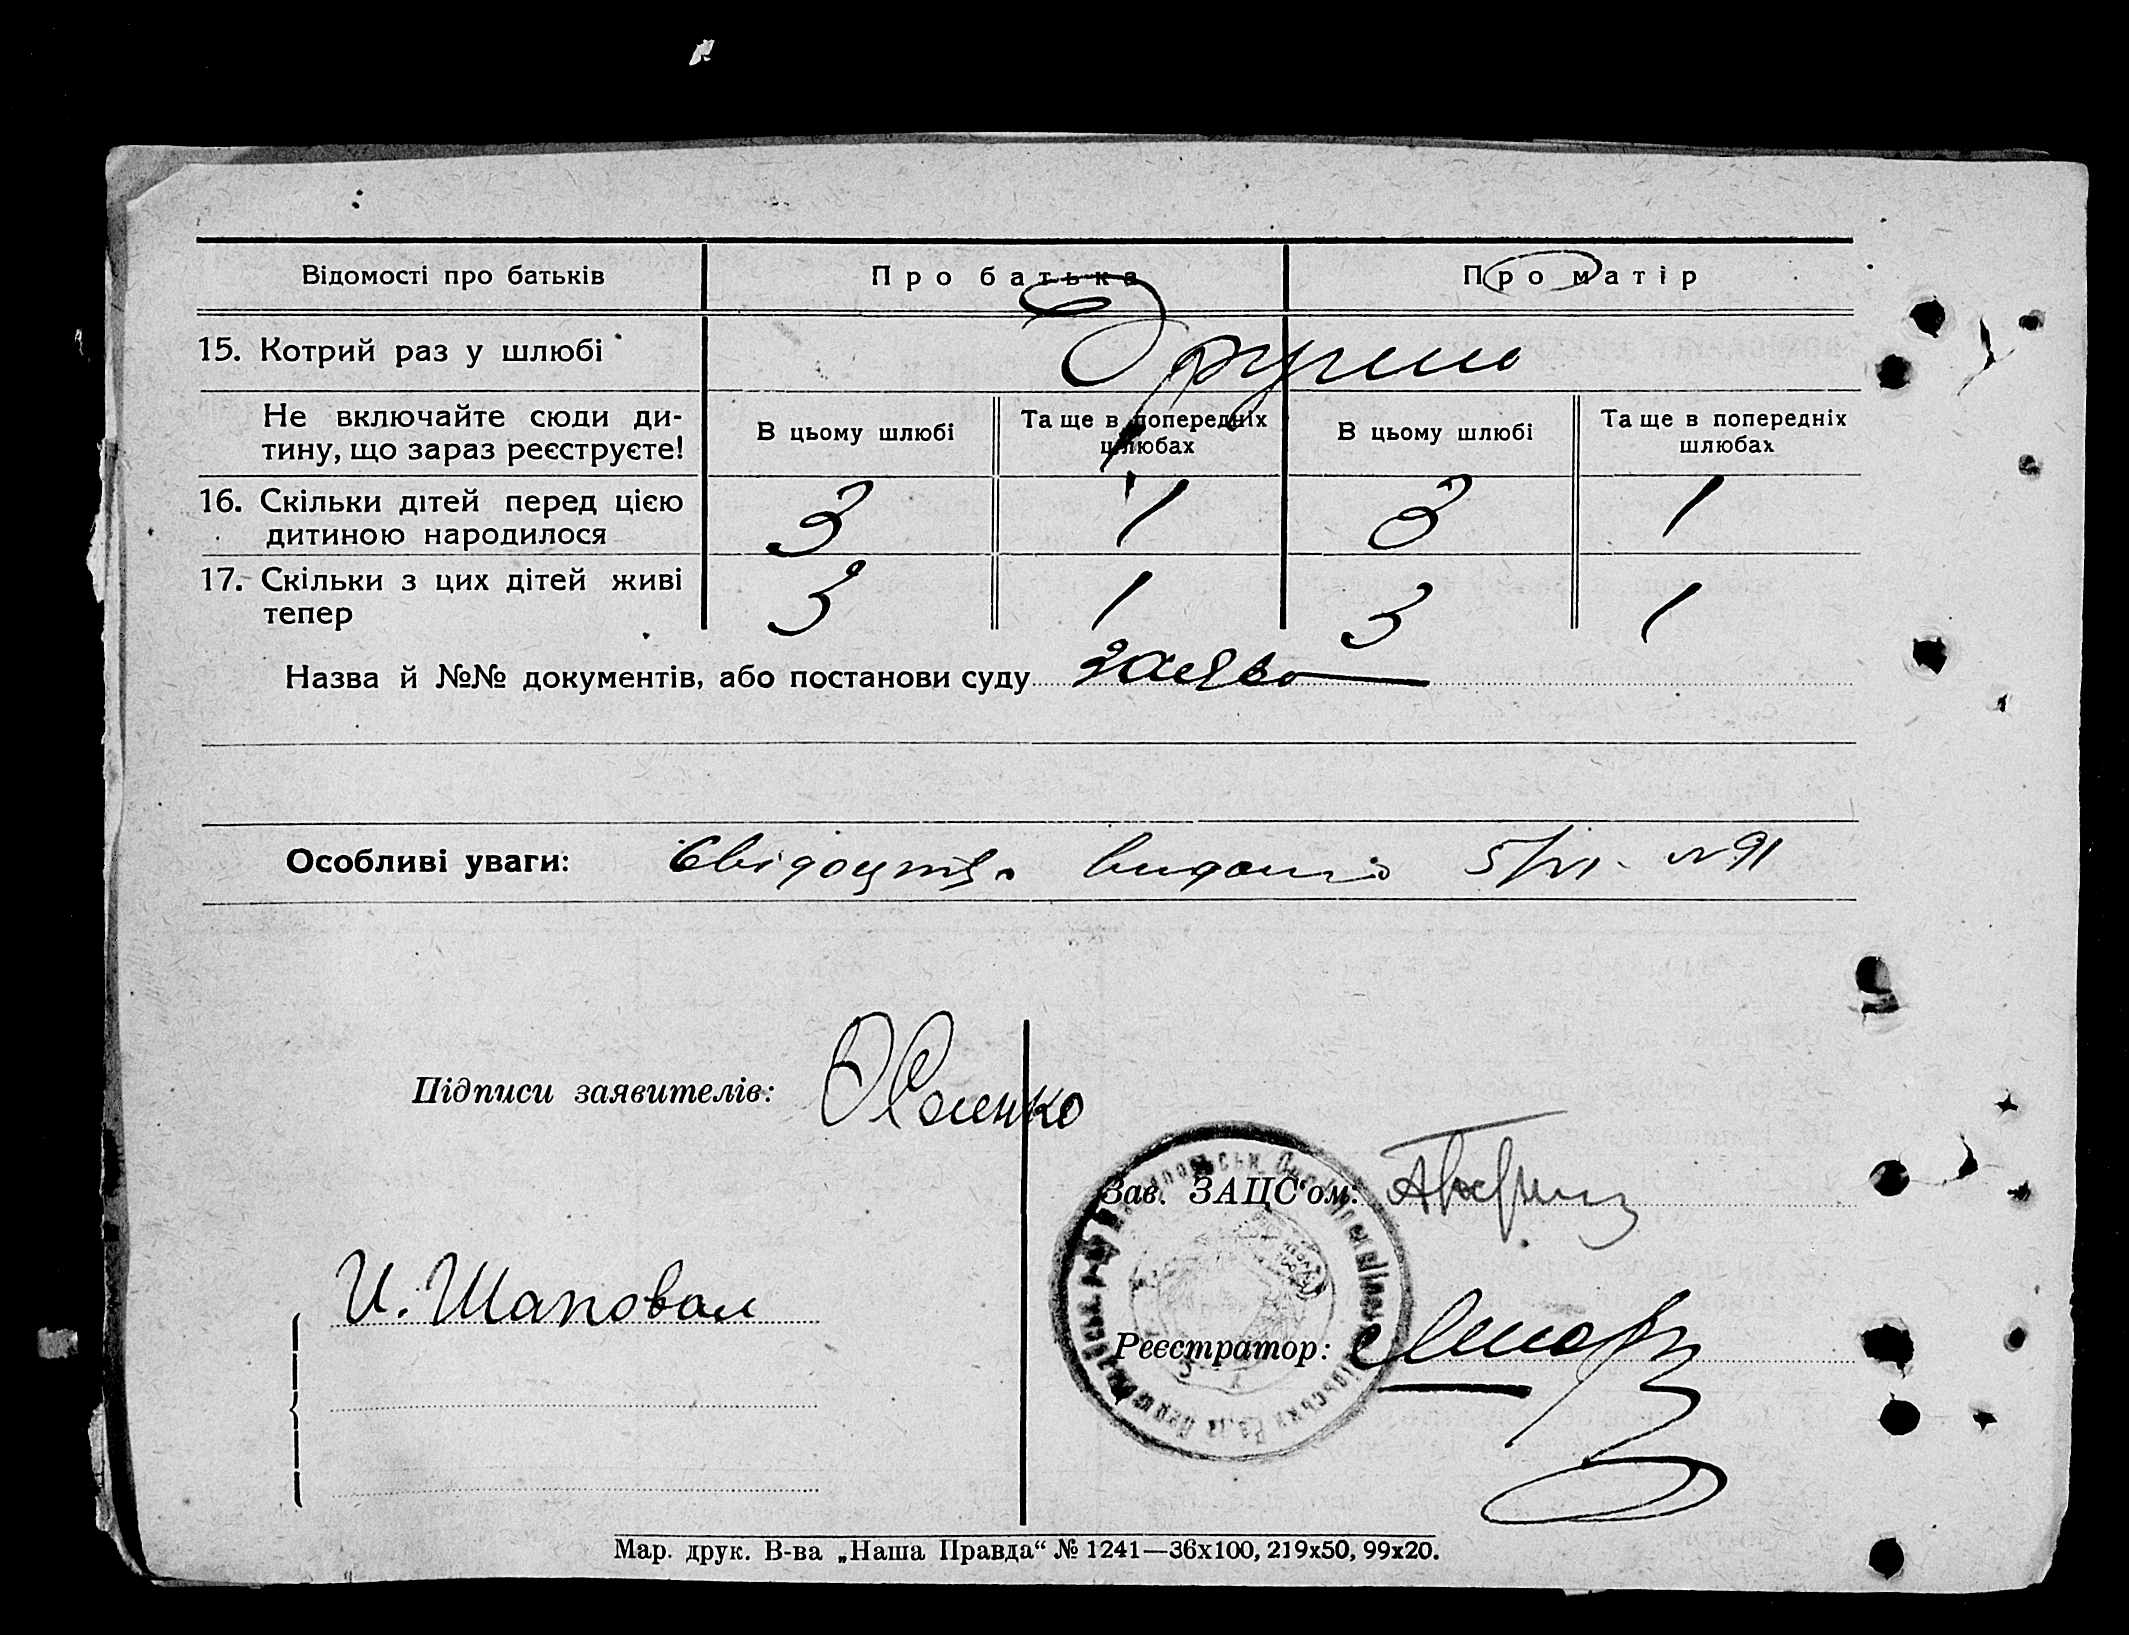 Відомості про батьків Про батька Про матір
15. Котрий раз у шлюбі
Не включайте сюди ди-
тину, що зараз реєструєте!
В цьому шлюбі Та ще в попередніх шлюбах В цьому шлюбі Та ще в попередніх шлюбах
16. Скільки дітей перед цією
дитиною народилося 3 1 3 1
17. Скільки з цих дітей живі
тепер 3 1 3 1
Назва й №№ документів, або постанови суду заява
Особливі уваги: Свідоцтво видано 5/VI - № 91
Підписи заявителів:
Зав. ЗАЦС'ом:
И. Шаповал
Реєстратор:
Мар. друк. В-ва „Наша Правда“ № 1241—36х100, 219х50, 99х20.